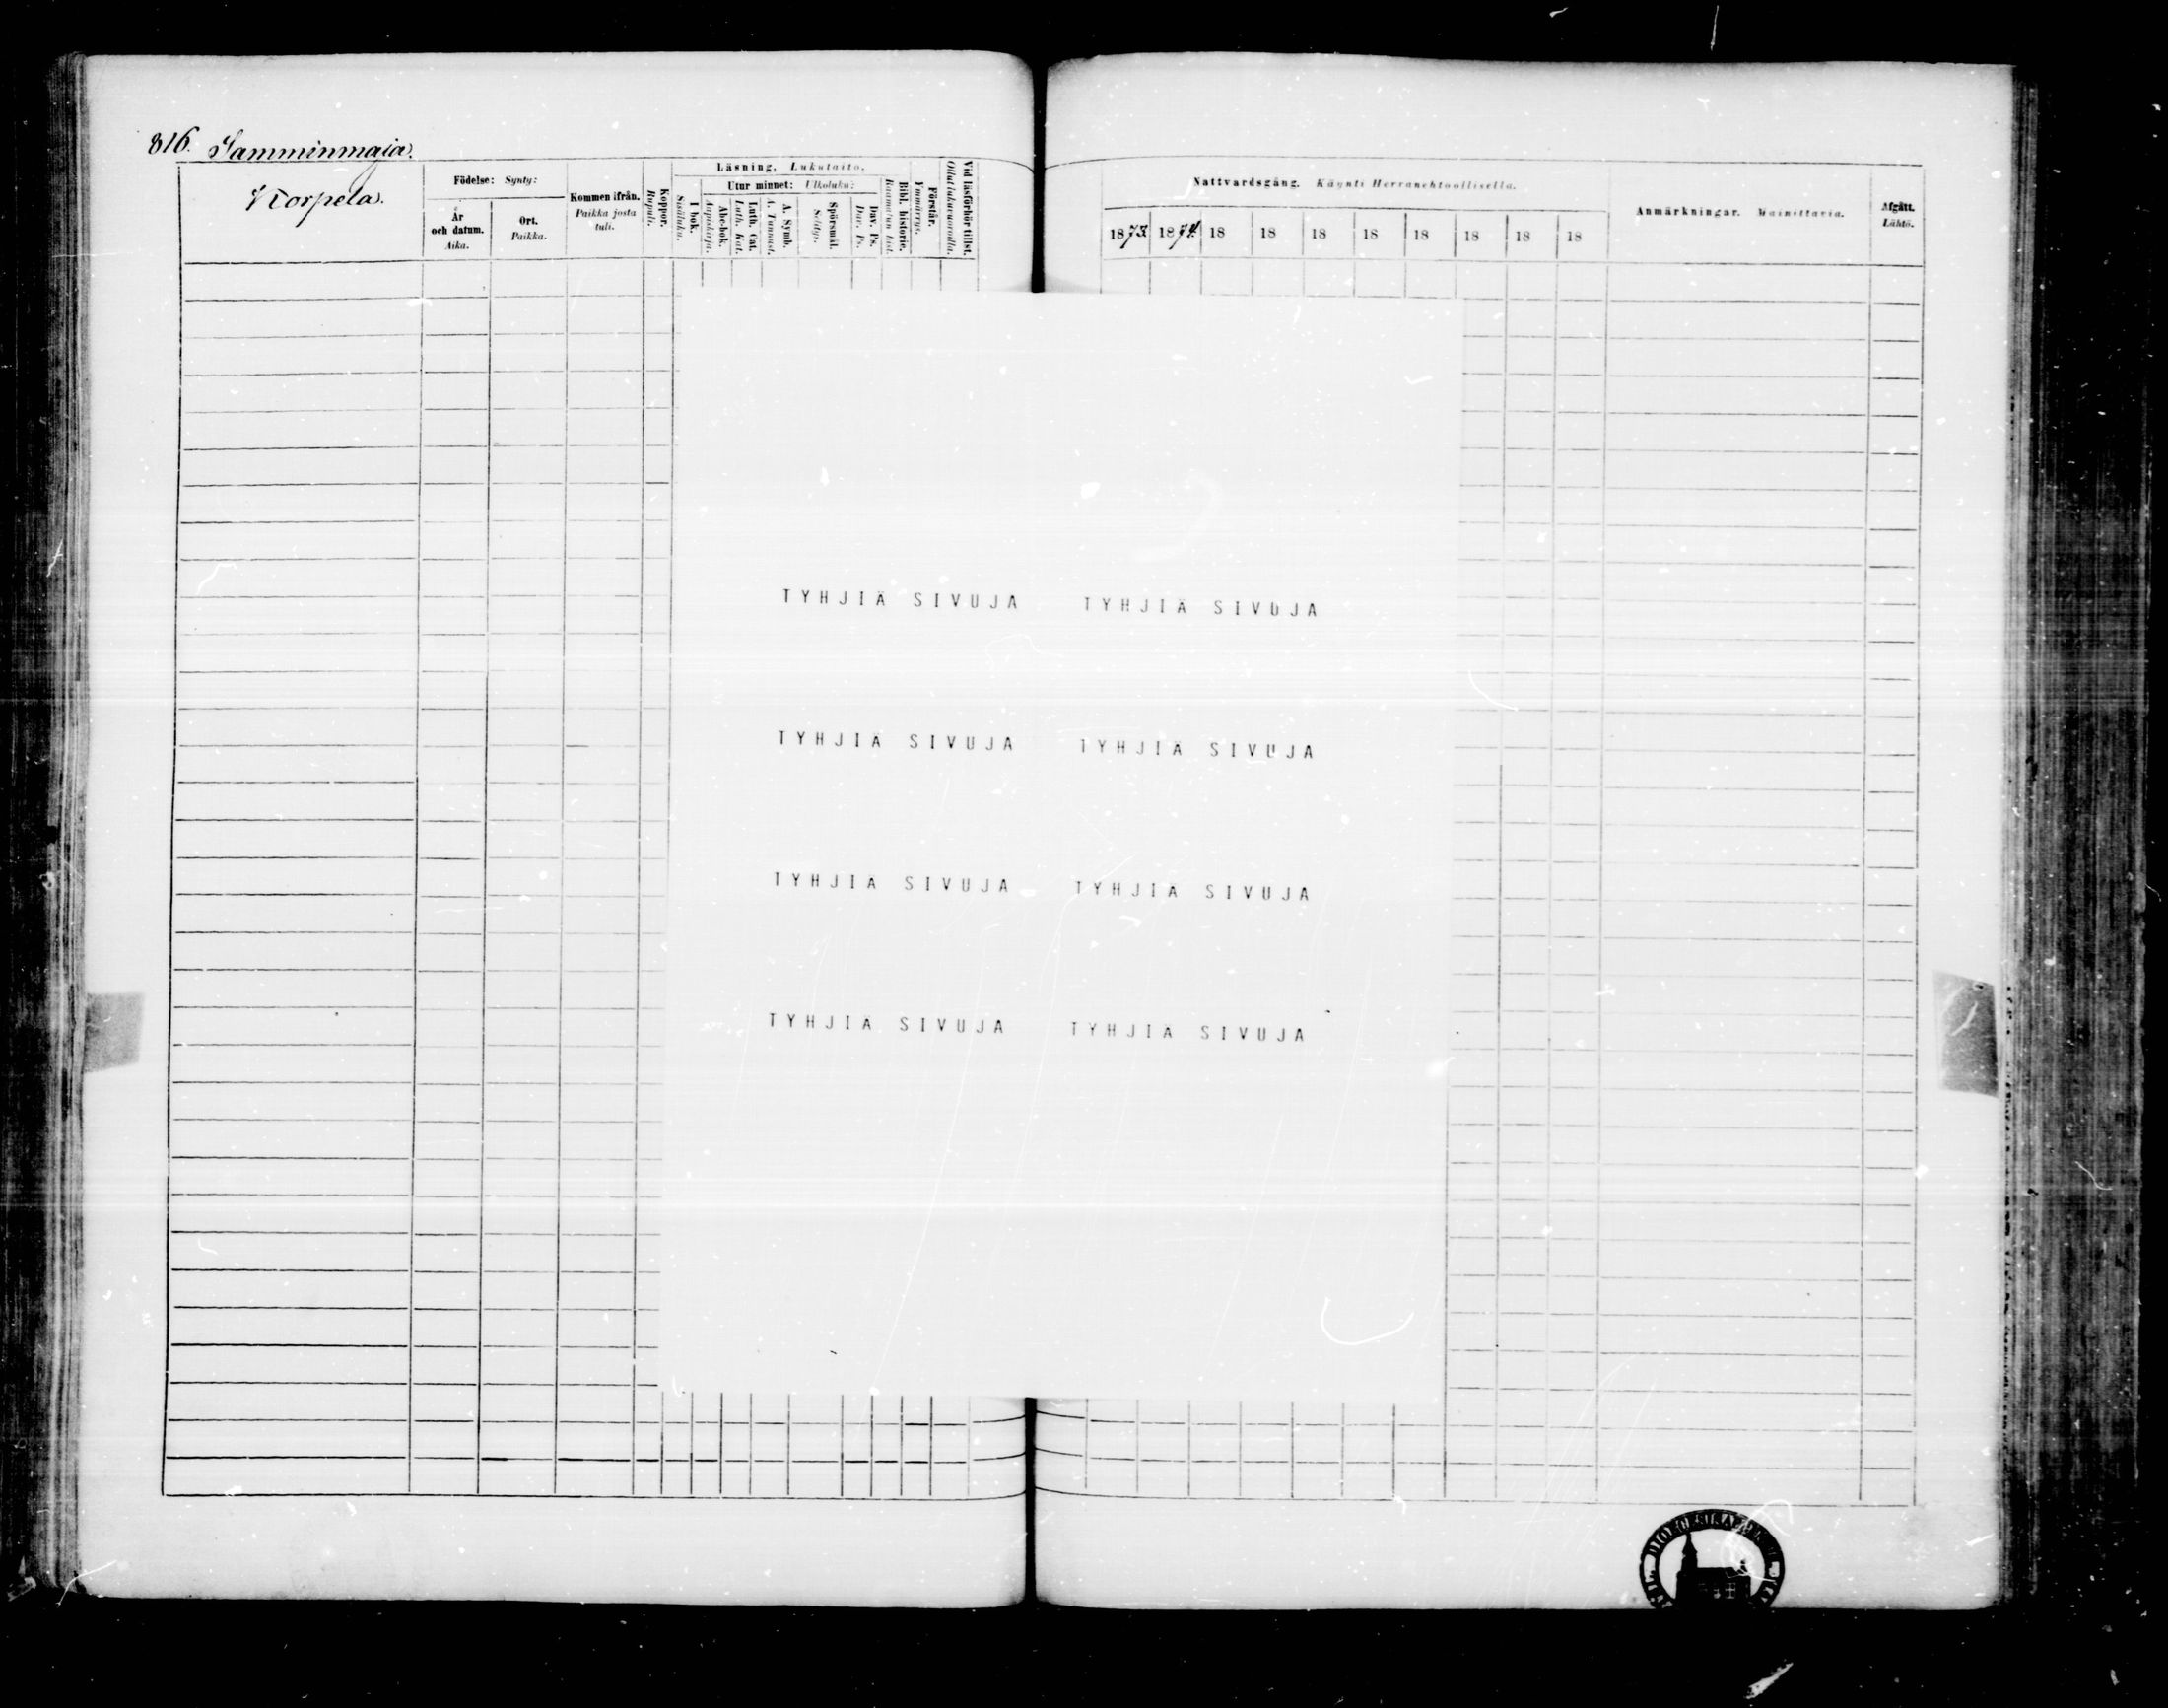 816. Samminmaja.
Korpela.
Födelse: Synty:
År och datum. Aika.
Ort. Paikka.
Kommen ifrån. Paikka josta tuli.
Koppor. Rupuli.
Läsning, Lukutaito.
I bok. Sisäluku.
Utur minnet: Ulkoluku:
Abc-bok. Aapiskirja.
Luth. Cat. Luth. Kat.
A. Symb. A. Tunnust.
Spörsmål. Selitys.
Dav. Ps. Dav. Ps.
Bibl. historie. Raamatun hist.
Förstår. Ymmärrys.
Vid läsförhör tillst. Ollut lukuwuoroilla.
Nattvardsgång. Käynti Herranehtoollisella.
1873. 1874. 18 18 18 18 18 18 18 18
Anmärkningar. Mainittavia.
Afgått. Lähtö.
TYHJIÄ SIVUJA TYHJIÄ SIVUJA
TYHJIÄ SIVUJA TYHJIÄ SIVUJA
TYHJIÄ SIVUJA TYHJIÄ SIVUJA
TYHJIÄ SIVUJA TYHJIÄ SIVUJA